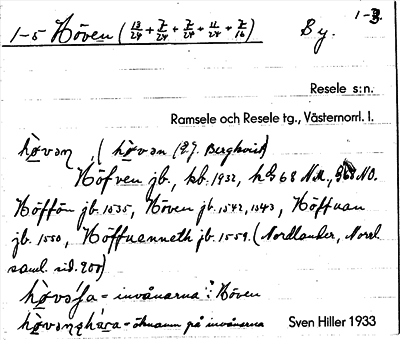 1-5 Höven (13/24 + 7/24 + 7/24 + 11/24 + 7/16) By. 1-3.
Resele s:n.
Ramsele och Resele tg., Västernorrl. l.
hòvən, (hòvən (E.J. Bergkvist)
Höfven jb., kb. 1932, hG 68 NM., NO.
Höffön jb. 1535, Höven jb. 1542, 1543, Höffuan
jb. 1550, Höffuanneth jb. 1559. (Nordlander, Norrl.
saml. sid. 200)
- invånarna i Höven
- öknamn på invånarna
Sven Hiller 1933